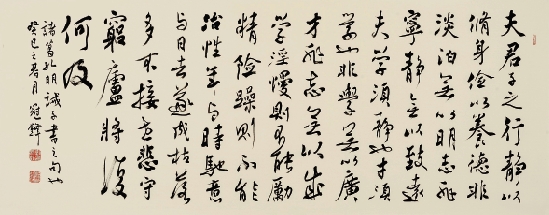 夫君子之行靜以
脩身儉以養德非
淡泊無以明志非
寧靜無以致遠
夫學須靜也才須
學也非學無以廣
才非志無以成
學淫慢則不能勵
精險躁則不能
冶性年與時馳意
與日去遂成枯落
多不接世悲守
窮廬將復
何及
諸葛孔明誡子書之句也
癸巳之春月